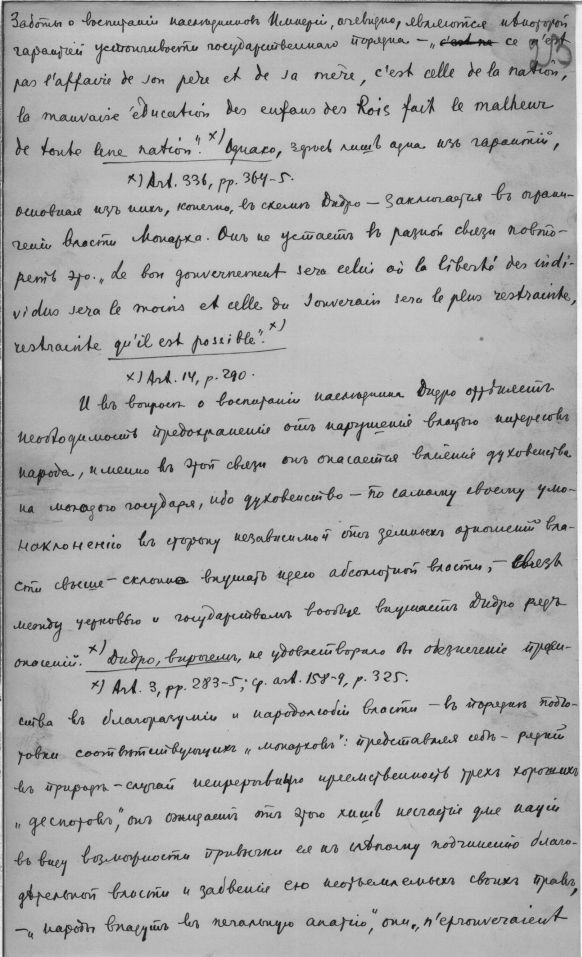 Заботы о воспитаніи наслѣдниковъ Имперіи, очевидно, являются нѣкоторой
гарантіей устойчивости государственнаго порядка — „ce n'est
pas l'affaire de son pere et de sa mère, c'est celle de la nation,
la mauvaise éducation des enfans des Rois fait le malheur
de toute une nation". x) Однако, здѣсь лишь одна изъ гарантій,
x) Art. 336, pp. 364-5.
основная изъ нихъ, конечно, въ схемѣ Дидро — заключается въ ограни-
ченіи власти Монарха. Онъ не устаетъ въ разной связи повто-
рять это. „Le bon gouvernement sera celui où la liberté des indi-
vidus sera le moins et celle du Souverain sera le plus restrainte,
restrainte qu'il est possible". x)
x) Art. 14, p. 290.
И въ вопросѣ о воспитаніи наслѣдника Дидро
необходимость предохраненія отъ нарушенія властью интересовъ
народа, именно въ этой связи онъ опасается вліянія духовенства
на молодого государя, ибо духовенство — по самому своему умо-
наклоненію въ сторону независимой отъ земныхъ отношеній вла-
сти свыше — склонно внушать идею абсолютной власти, — связь
между церковью и государствомъ вообще внушаетъ Дидро рядъ
опасеній. x) Дидро, впрочемъ, не удовлетворяло бы обезпеченіе прави-
x) Art. 3, pp. 283-5; ср. art. 158-9, p. 325.
ства въ благоразуміи и народолюбіи власти — въ порядкѣ подго-
товки соотвѣтствующихъ „монарховъ": представляя себѣ — рѣдкій
въ природѣ — случай непрерывную преемственность трехъ хорошихъ
„деспотовъ", онъ ожидаетъ отъ этого лишь несчастіе для націи
въ виду возможности привычки ея къ слѣпому подчиненію благо-
дѣтельной власти и забвенія ею неотъемлемыхъ своихъ правъ,
— „народы впадутъ въ печальную апатію", они „n'éprouveraient